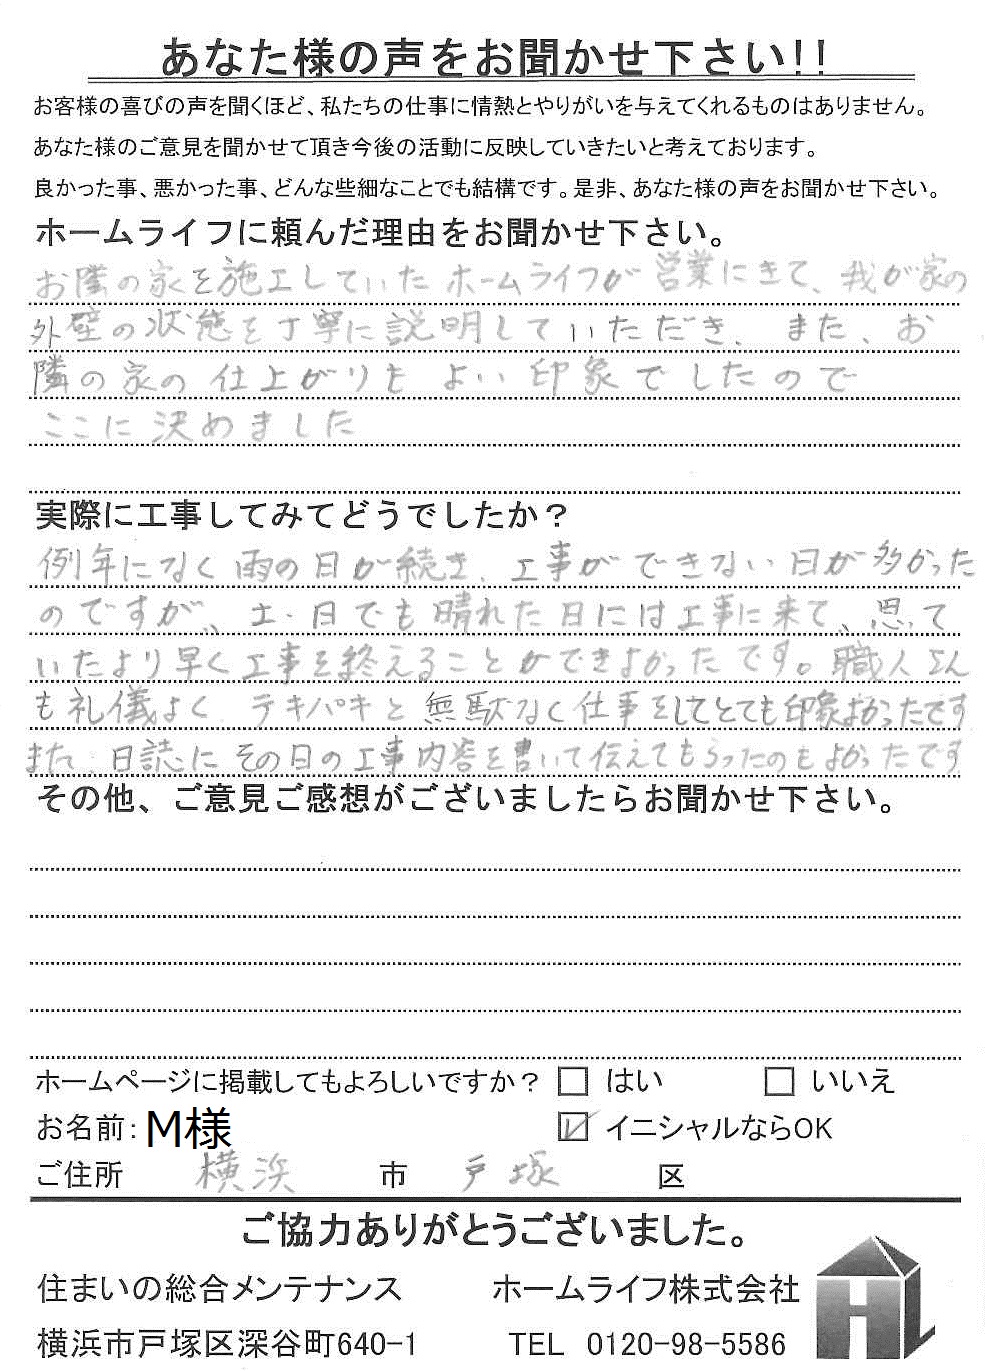 あなた様の声をお聞かせ下さい!!
お客様の喜びの声を聞くほど、私たちの仕事に情熱とやりがいを与えてくれるものはありません。
あなた様のご意見を聞かせて頂き今後の活動に反映していきたいと考えております。
良かった事、悪かった事、どんな些細なことでも結構です。是非、あなた様の声をお聞かせ下さい。
ホームライフに頼んだ理由をお聞かせ下さい。
お隣の家を施工していたホームライフが営業にきて、我が家の
外壁の状態を丁寧に説明していただき、また、お
隣の家の仕上がりもよい印象でしたので
ここに決めました
実際に工事してみてどうでしたか?
例年になく雨の日が続き、工事ができない日が多かった
のですが、土・日でも晴れた日には工事に来て、思って
いたより早く工事を終えることができよかったです。職人さん
も礼儀よくテキパキと無駄なく仕事をしてとても印象よかったです
また、日誌にその日の工事内容を書いて伝えてもらったのもよかったです
その他、ご意見ご感想がございましたらお聞かせ下さい。
ホームページに掲載してもよろしいですか? はい いいえ
お名前: M様 イニシャルならOK
ご住所 横浜 市 戸塚 区
ご協力ありがとうございました。
住まいの総合メンテナンス ホームライフ株式会社
横浜市戸塚区深谷町640-1 TEL 0120-98-5586
HL